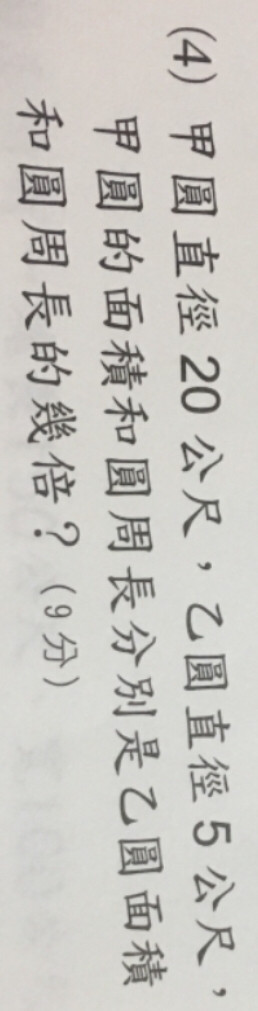 (4) 甲圓直徑20公尺，乙圓直徑5公尺，
甲圓的面積和圓周長分別是乙圓面積
和圓周長的幾倍？(9分)